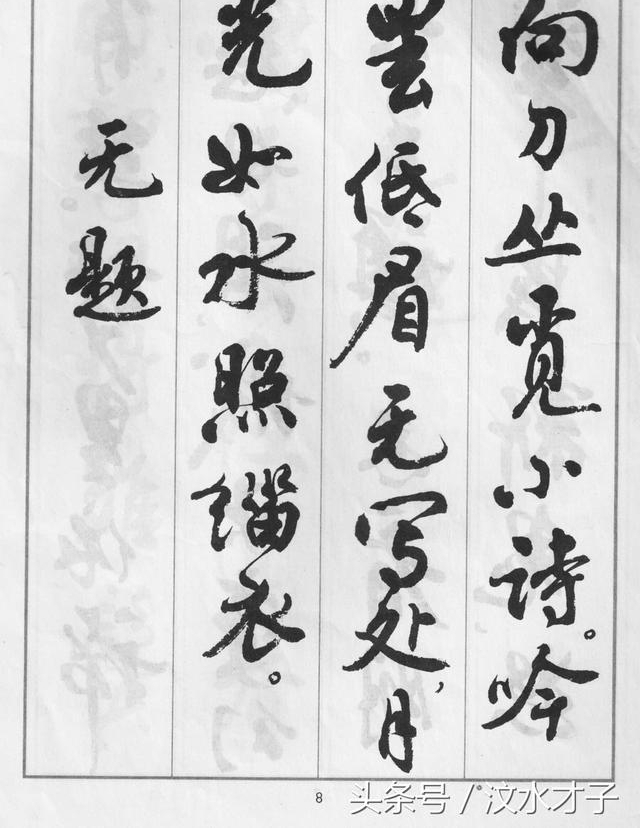 向刀丛觅小诗。吟
罢低眉无写处，月
光如水照缁衣。
无题
8
头条号 / 汶水才子